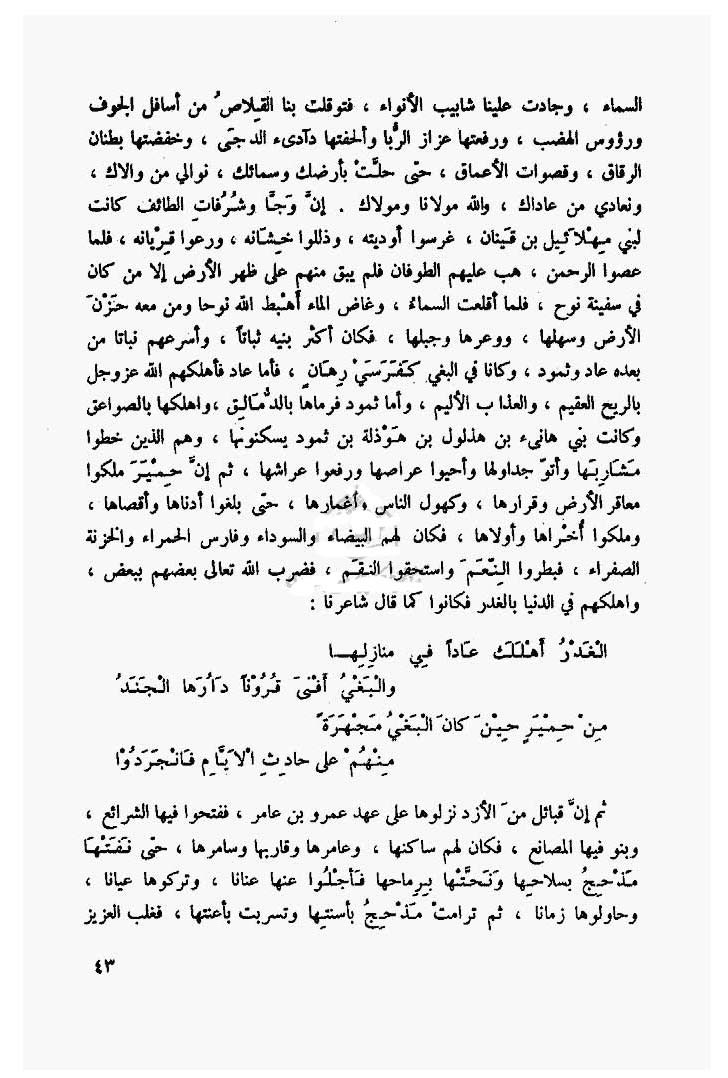 السماء ، وجادت علينا شابيب الأنواء ، فتوقلت بنا القِلاصُ من أسافل الجوف
ورؤوس الهضب ، ورفعتها عزاز الرُّبا وألحفتها دآدىء الدجَى ، وخفضتها بطنان
الرقاق ، وقصوات الأعماق ، حتّى حلَّتْ بأرضك وسمائك ، نوالي من والاك ،
ونعادي من عاداك ، والله مولانا ومولاك . إنَّ وَجّاً وشُرُفاتِ الطائف كانت
لبني مِهْلاَئيل بن قَينان ، غرسوا أوديته ، وذللوا خِشَانه ، ورعوا قرْيانه ، فلما
عصوا الرحمن ، هب عليهم الطوفان فلم يبق منهم على ظهر الأرض إلا من كان
في سفينة نوح ، فلما أقلعت السماءُ ، وغاض الماء أَهْبط الله نوحا ومن معه حَزْنَ
الأرض وسهلها ، ووعرها وجبلها ، فكان أكثر بنيه ثباتاً ، وأسرعهم نباتا من
بعده عاد وثمود ، وكانا في البغي كَفَرَسَيْ رِهَانٍ ، فأما عاد فأهلكهم الله عزوجل
بالريح العقيم ، والعذاب الأليم ، وأما ثمود فرماها بالدُّمَالِقِ ،واهلكها بالصواعق
وكانت بني هانىء بن هذلول بن هَوْذلة بن ثمود يسكنونها ، وهم الذين خطوا
مَشَاربَها وأتوّ جداولها وأحيوا عراصها ورفعوا عراشها ، ثم إنَّ حِمْيَرَ ملكوا
معاقر الأرض وقرارها ، وكهول الناس وأغمارها ، حتّى بلغوا أدناها وأقصاها ،
وملكوا أُخْراها وأولاها ، فكان لهم البيضاء والسوداء وفارس الحمراء والخزنة
الصفراء ، فبطروا النِّعَمَ واستحقوا النقَم ، فضرب الله تعالى بعضهم ببعض ،
واهلكهم في الدنيا بالغدر فكانوا كما قال شاعرنا :
الْغَدْرُ أَهْلَكَ عَاداً فِي منازِلِهـــا
والْبَغْيُ أَفْنىَ قُرُوْناً دَارُهَا الْجَنَدُ
مِنْ حِمْيَرٍ حِيْنَ كانَ الْبَغْيُ مَجْهَرَةً
مِنْهُمْ على حادِثِ الْأَيَّامِ فَانْجَرَدُوْا
ثم إنَّ قبائل منَ الأزد نزلوها على عهد عمرو بن عامر ، ففتحوا فيها الشرائع ،
وبنو فيها المصانع ، فكان لهم ساكنها ، وعامرها وقاربها وسامرها ، حتّى نَفَتْهَا
مَذْحِجُ بسلاحِها وَنَحَّتْها بِرِماحها فَأَجْلَوا عنها عنانا ، وتركوها عيانا ،
وحاولوها زمانا ، ثم ترامتْ مَذْحِجُ بأسنتِها وتسربت بأعنتها ، فغلب العزيز
٤٣